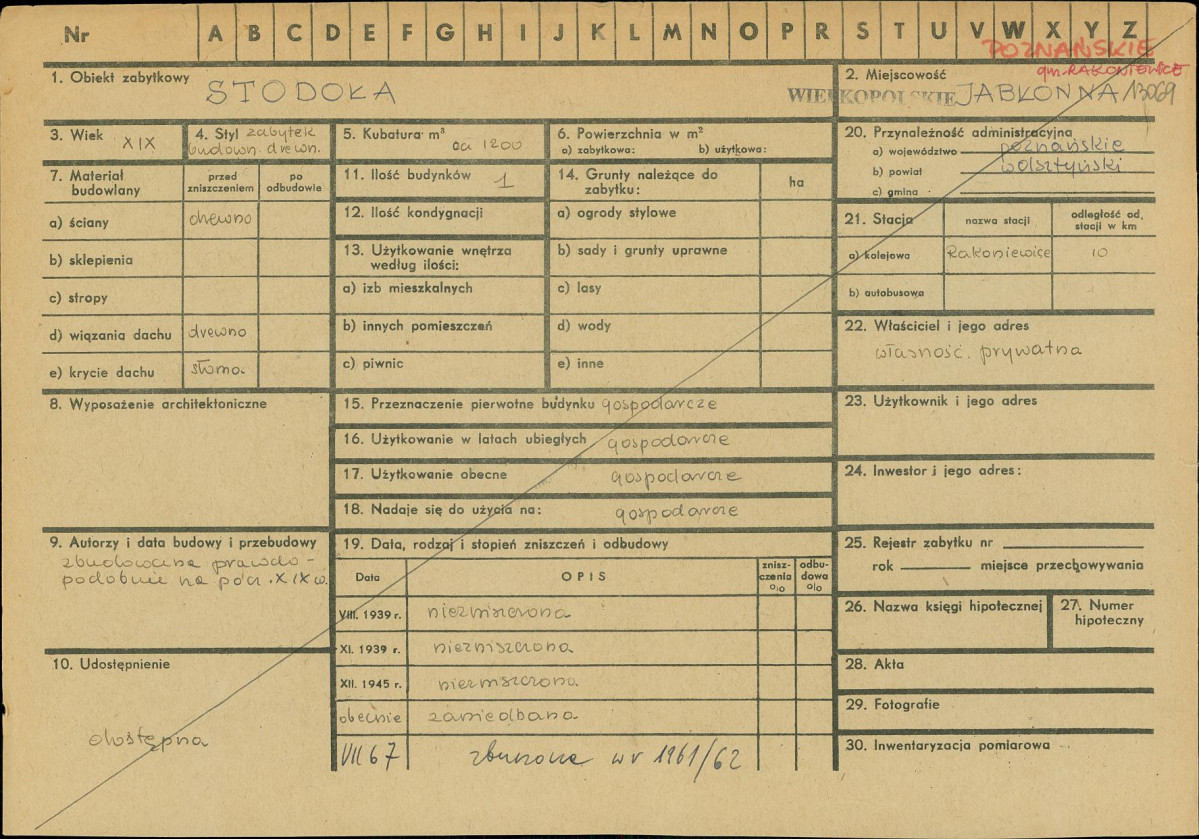 Nr A B C D E F G H I J K L M N O P R S T U V W X Y Z
POZNAŃSKIE
gm. RAKONIEWICE
1. Obiekt zabytkowy
STODOŁA
2. Miejscowość
WIELKOPOLSKIE JABŁONNA 13069
3. Wiek XIX
4. Styl zabytek
budown. drewn.
5. Kubatura m³
ca 1200
6. Powierzchnia w m²
a) zabytkowa: b) użytkowa:
7. Materiał
budowlany
przed
zniszczeniem
po
odbudowie
a) ściany drewno
b) sklepienia
c) stropy
d) wiązania dachu drewno
e) krycie dachu słoma
8. Wyposażenie architektoniczne
9. Autorzy i data budowy i przebudowy
zbudowana prawdo-
podobnie na pocz. XIX w.
10. Udostępnienie
dostępna
11. Ilość budynków 1
12. Ilość kondygnacji
13. Użytkowanie wnętrza
według ilości:
a) izb mieszkalnych
b) innych pomieszczeń
c) piwnic
14. Grunty należące do
zabytku:
ha
a) ogrody stylowe
b) sady i grunty uprawne
c) lasy
d) wody
e) inne
15. Przeznaczenie pierwotne budynku gospodarcze
16. Użytkowanie w latach ubiegłych gospodarcze
17. Użytkowanie obecne gospodarcze
18. Nadaje się do użycia na: gospodarcze
19. Data, rodzaj i stopień zniszczeń i odbudowy
Data
OPIS
znisz-
czenia
%
odbu-
dowa
%
VIII. 1939 r. niezniszczona
XI. 1939 r. niezniszczona
XII. 1945 r. niezniszczona
obecnie zaniedbana
VII 67 zburzona w r 1961/62
20. Przynależność administracyjna
a) województwo poznańskie
b) powiat wolsztyński
c) gmina
21. Stacja
nazwa stacji
odległość od
stacji w km
a) kolejowa Rakoniewice 10
b) autobusowa
22. Właściciel i jego adres
własność prywatna
23. Użytkownik i jego adres
24. Inwestor i jego adres:
25. Rejestr zabytku nr
rok miejsce przechowywania
26. Nazwa księgi hipotecznej
27. Numer
hipoteczny
28. Akta
29. Fotografie
30. Inwentaryzacja pomiarowa